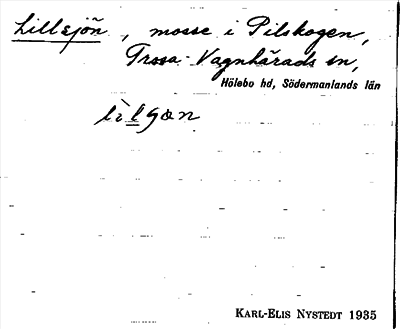 Lillsjön, mosse i Pilskogen,
Trosa-Vagnhärads sn,
Hölebo hd, Södermanlands län
KARL-ELIS NYSTEDT 1935